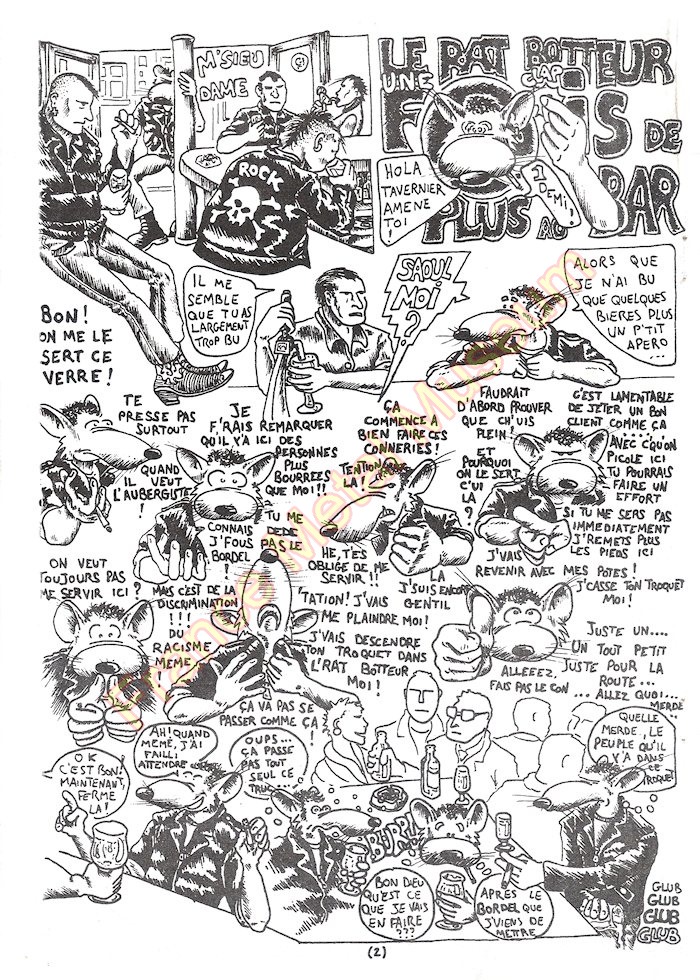 M'SIEU
DAME
LE RAT BOTTEUR
UNE
CLAP
FOIS DE
PLUS AU BAR
HOLA
TAVERNIER
AMENE
TOI !
1
DEMI!
ROCK
BON!
ON ME LE
SERT CE
VERRE !
IL ME
SEMBLE
QUE TU AS
LARGEMENT
TROP BU
SAOUL
MOI
?
ALORS QUE
JE N'AI BU
QUE QUELQUES
BIERES PLUS
UN P'TIT
APERO ...
TE
PRESSE PAS
SURTOUT
QUAND
IL VEUT
L'AUBERGISTE
!
JE
F'RAIS REMARQUER
QU'IL Y'A ICI DES
PERSONNES
PLUS
BOURREES
QUE MOI!!
ÇA
COMMENCE A
BIEN FAIRE CES
CONNERIES!
TENTION
LA !
FAUDRAIT
D'ABORD PROUVER
QUE CH'UIS
PLEIN !
ET
POURQUOI
ON LE SERT
C'UI
LA
?
C'EST LAMENTABLE
DE JETER UN BON
CLIENT COMME ÇA
.... AVEC C'QU'ON
PICOLE ICI
TU POURRAIS
FAIRE UN
EFFORT
SI TU ME SERS PAS
IMMEDIATEMENT
J'REMETS PLUS
LES PIEDS ICI
ON VEUT
TOUJOURS PAS
ME SERVIR ICI ?
CONNAIS
J'FOUS
BORDEL
!
TU ME
DEDE
PAS LE
MAIS C'EST DE LA
DISCRIMINATION
!!!
DU
RACISME
MEME
!
HE, T'ES
OBLIGE DE ME
SERVIR !!
LA
J'SUIS ENCORE
GENTIL
J'VAIS
REVENIR AVEC MES POTES!
J'CASSE TON TROQUET
MOI !
'TATION! J'VAIS
ME PLAINDRE MOI!
J'VAIS DESCENDRE
TON TROQUET DANS
L'RAT BOTTEUR
MOI !
ÇA VA PAS SE
PASSER COMME ÇA !
ALLEEEZ,
FAIS PAS LE CON ...
JUSTE UN....
UN TOUT PETIT
JUSTE POUR LA
ROUTE ...
... ALLEZ QUOI...
MERDE
OK
C'EST BON!
MAINTENANT,
FERME
LA !
AH! QUAND
MEME, J'AI
FAILLI
ATTENDRE
OUPS...
ÇA PASSE
PAS TOUT
SEUL CE
TRUC...
QUELLE
MERDE.. LE
PEUPLE QU'IL
Y'A DANS
CE
TROQUET
BURP!
BON DIEU
QU'EST CE
QUE JE VAIS
EN FAIRE
???
APRES LE
BORDEL QUE
J'VIENS DE
METTRE
GLUB
GLUB
GLUB
GLUB
(2)
France Metal Museum